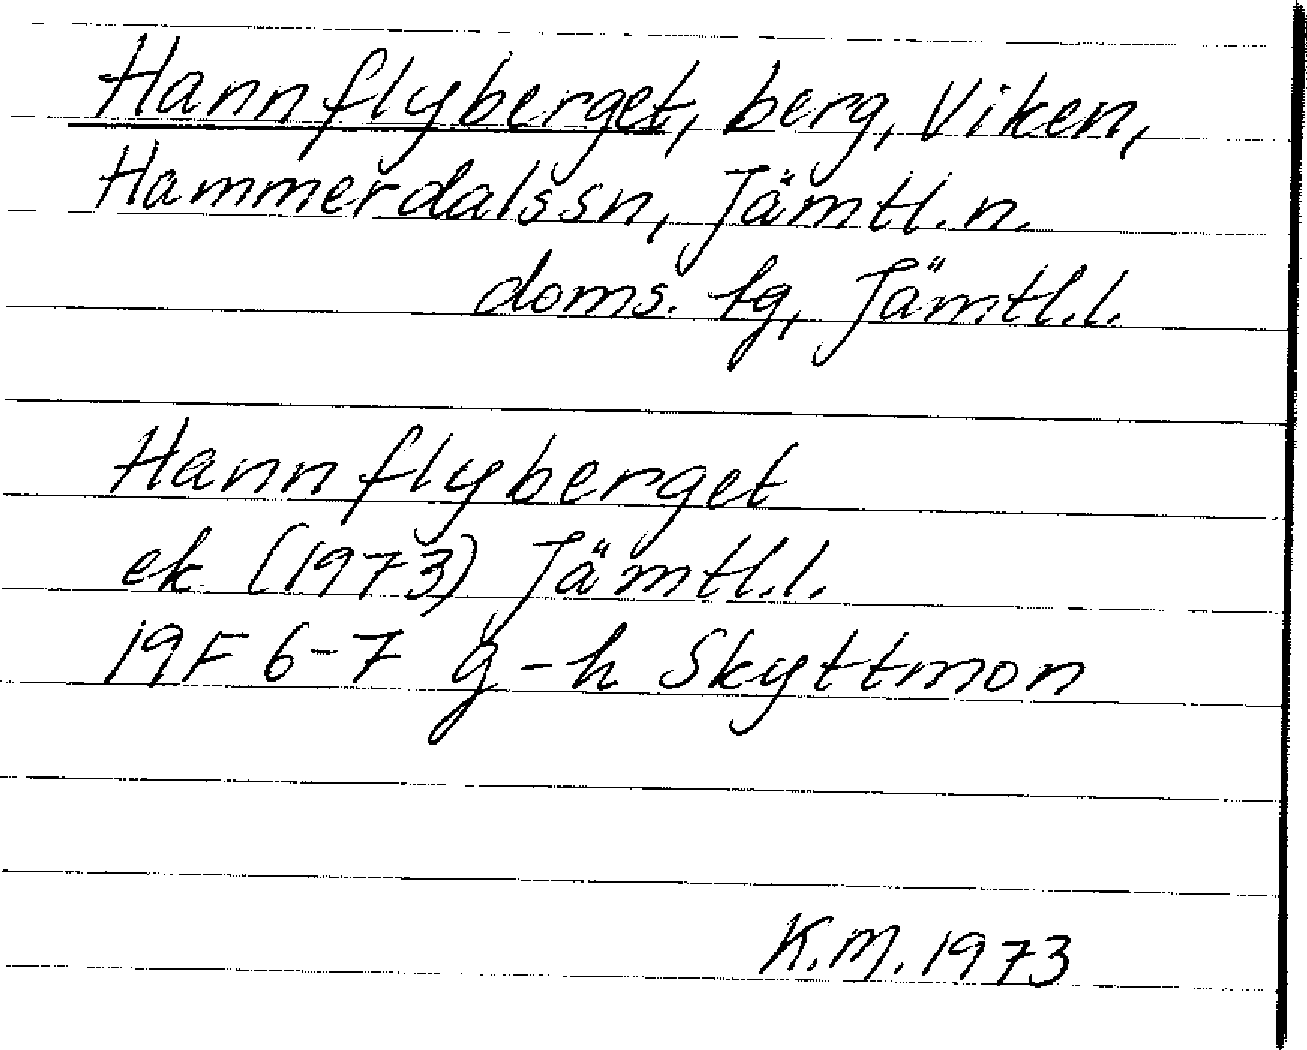 Hannflyberget, berg, Viken,
Hammerdals sn, Jämtl. n.
doms. tg, Jämtl. l.
Hannflyberget
ek (1973) Jämtl. l.
19F 6-7 g-h Skyttmon
K.M. 1973